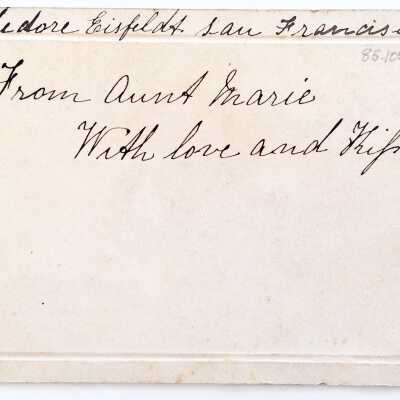 edore Eisfeldt San Francis
85.105
From Aunt Marie
With love and Kiss